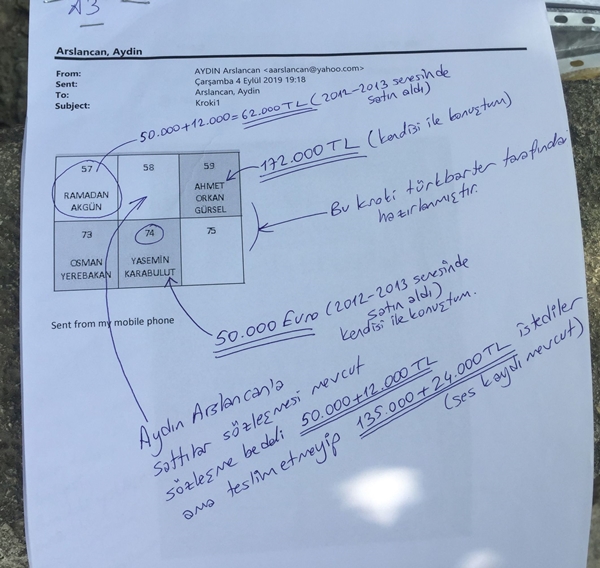 A3
Arslancan, Aydin
From: AYDIN Arslancan <aarslancan@yahoo.com>
Sent: Çarşamba 4 Eylül 2019 19:18
To: Arslancan, Aydin
Subject: Kroki1
50.000+12.000=62.000TL (2012-2013 senesinde
satın aldı)
172.000TL (kendisi ile konuştum)
57 58 59
RAMADAN AKGÜN
AHMET ORKAN GÜRSEL
Bu kroki türkbarter tarafında
hazırlanmıştır.
73 74 75
OSMAN YEREBAKAN
YASEMİN KARABULUT
Sent from my mobile phone
50.000 Euro (2012-2013 senesinde
satın aldı)
kendisi ile konuştum.
Aydın Arslancan'a
sattılar sözleşmesi mevcut
sözleşme bedeli 50.000+12.000TL
ama teslim etmeyip 135.000+24.000TL istediler
(ses kaydı mevcut)